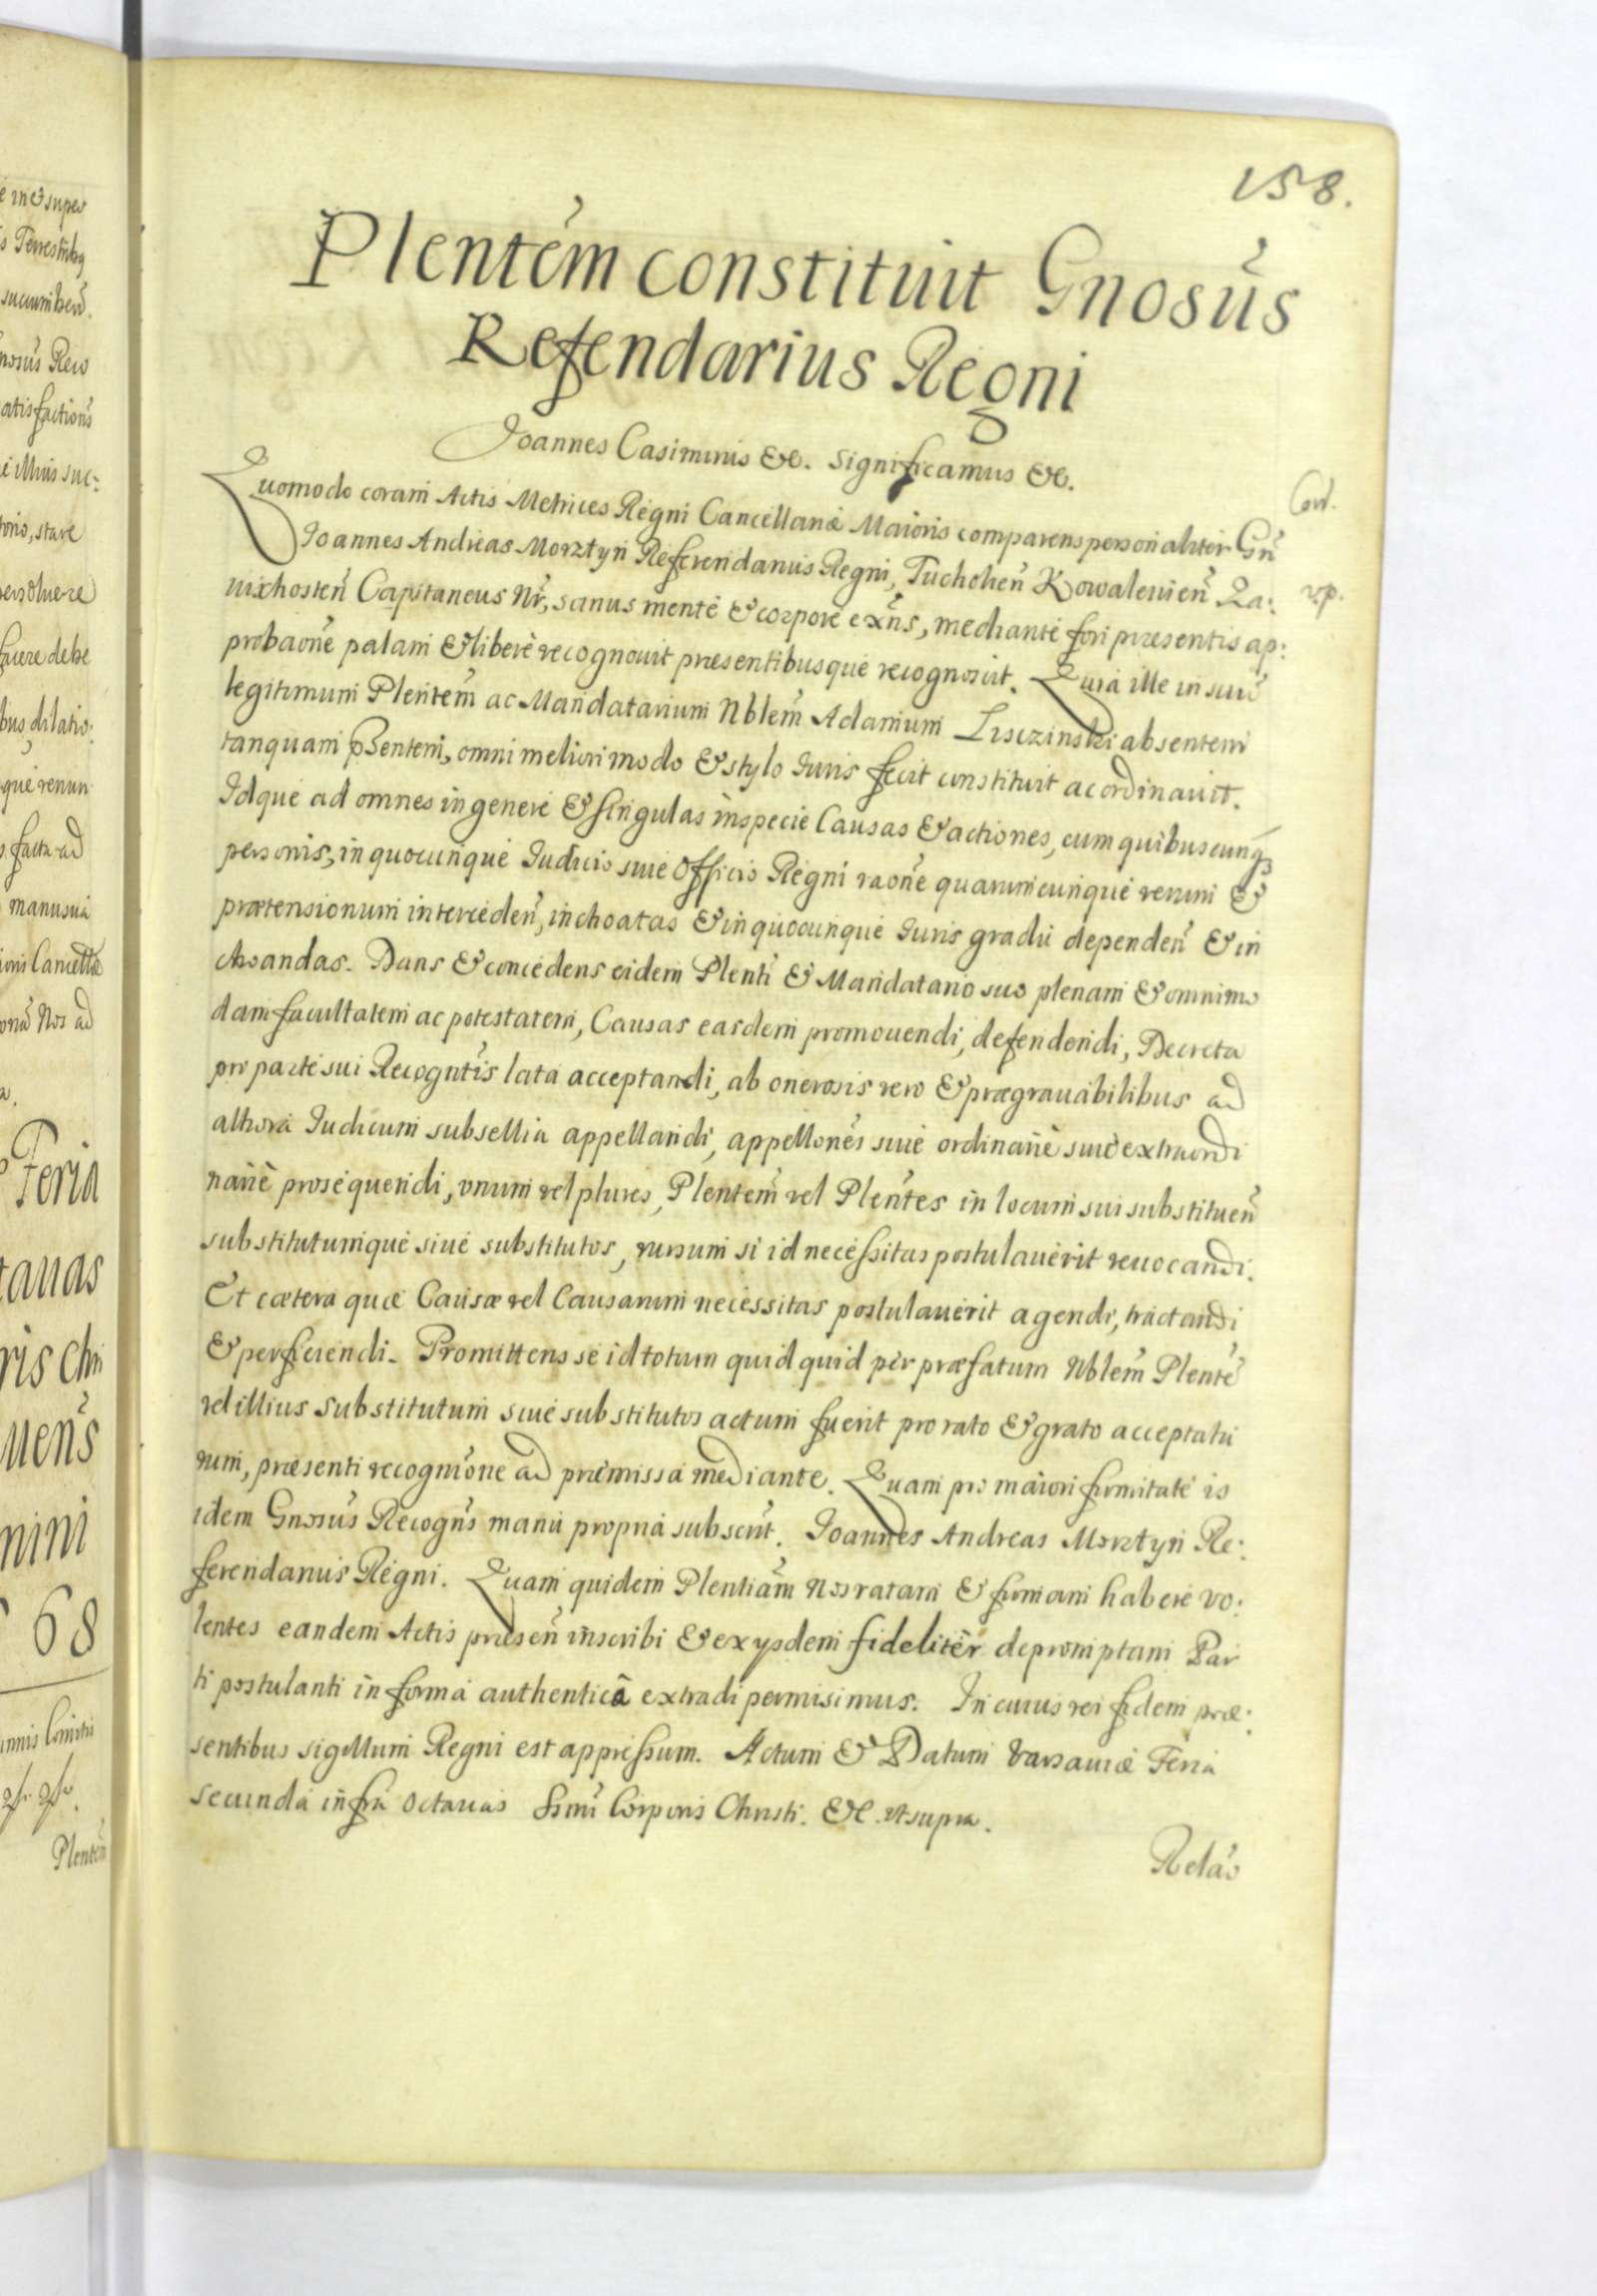 158.
Plentem̃ constituit Gnosũs
Refendarius Regni
Joannes Casimirus &c. Significamus &c.
Quomodo coram Actis Metrices Regni Cancellariæ Maioris comparens personaliter Gñ
Joannes Andreas Morztyn Referendarius Regni, Tucholień Kowalevień Za:
wixhosteń Capitaneus Nr̃, sanus mente & corpore exñs, mediante fori præsentis ap:
probaoñe palam & libere recognovit præsentibusque recognoscit. Quia ille in suũ
legitimum Plentem̃ ac Mandatarium Nblem̃ Adamum Lisczinski absentem
tanquam p̃sentem, omni meliori modo & stylo Juris fecit constituit ac ordinavit.
Idque ad omnes in genere & singulas in specie Causas & actiones, cum quibuscunq̃
personis, in quocunque Judicio sive Officio Regni raoñe quarumcunque rerum &
prætensionum interceden̄, inchoatas & in quocunque Juris gradu dependen̄ & in
choandas. Dans & concedens eidem Plenti & Mandatario suo plenam & omnimo
dam facultatem ac potestatem, Causas easdem promouendi, defendendi, Decreta
pro parte sui Recogntĩs lata acceptandi, ab onerosis vero & prægrauabilibus ad
altiora Judicum subsellia appellandi, appellonẽs siue ordinariè siuè extraordi
nariè prosequendi, vnum vel plures, Plentem̃ vel Plentẽs in locum sui substituen̄
substitutumque siue substitutos, rursum si id necessitas postulauerit reuocandi.
Et cætera quæ Causæ vel Causarum necessitas postulauerit agendi, tractandi
& perficiendi. Promittens se id totum quidquid per præfatum Nblem̃ Plentẽ
vel illius substitutum siue substitutos actum fuerit pro rato & grato acceptatu
rum, præsenti recognĩone ad præmissa mediante. Quam pro maiori firmitate is
idem Gnosũs Recogñs manu propria subscrĩt. Joannes Andreas Morztyn Re:
ferendarius Regni. Quam quidem Plentiãm Nos ratam & firmam habere vo:
lentes eandem Actis præsen̄ inscribi & ex ysdem fideliter depromptam Par
ti postulanti in forma authenticâ extradi permisimus. In cuius rei fidem præ:
sentibus sigillum Regni est appressum. Actum & Datum Varsauiæ Feria
secunda infra Octauas Ssmĩ Corporis Christi. &c. vt supra.
Relaõ